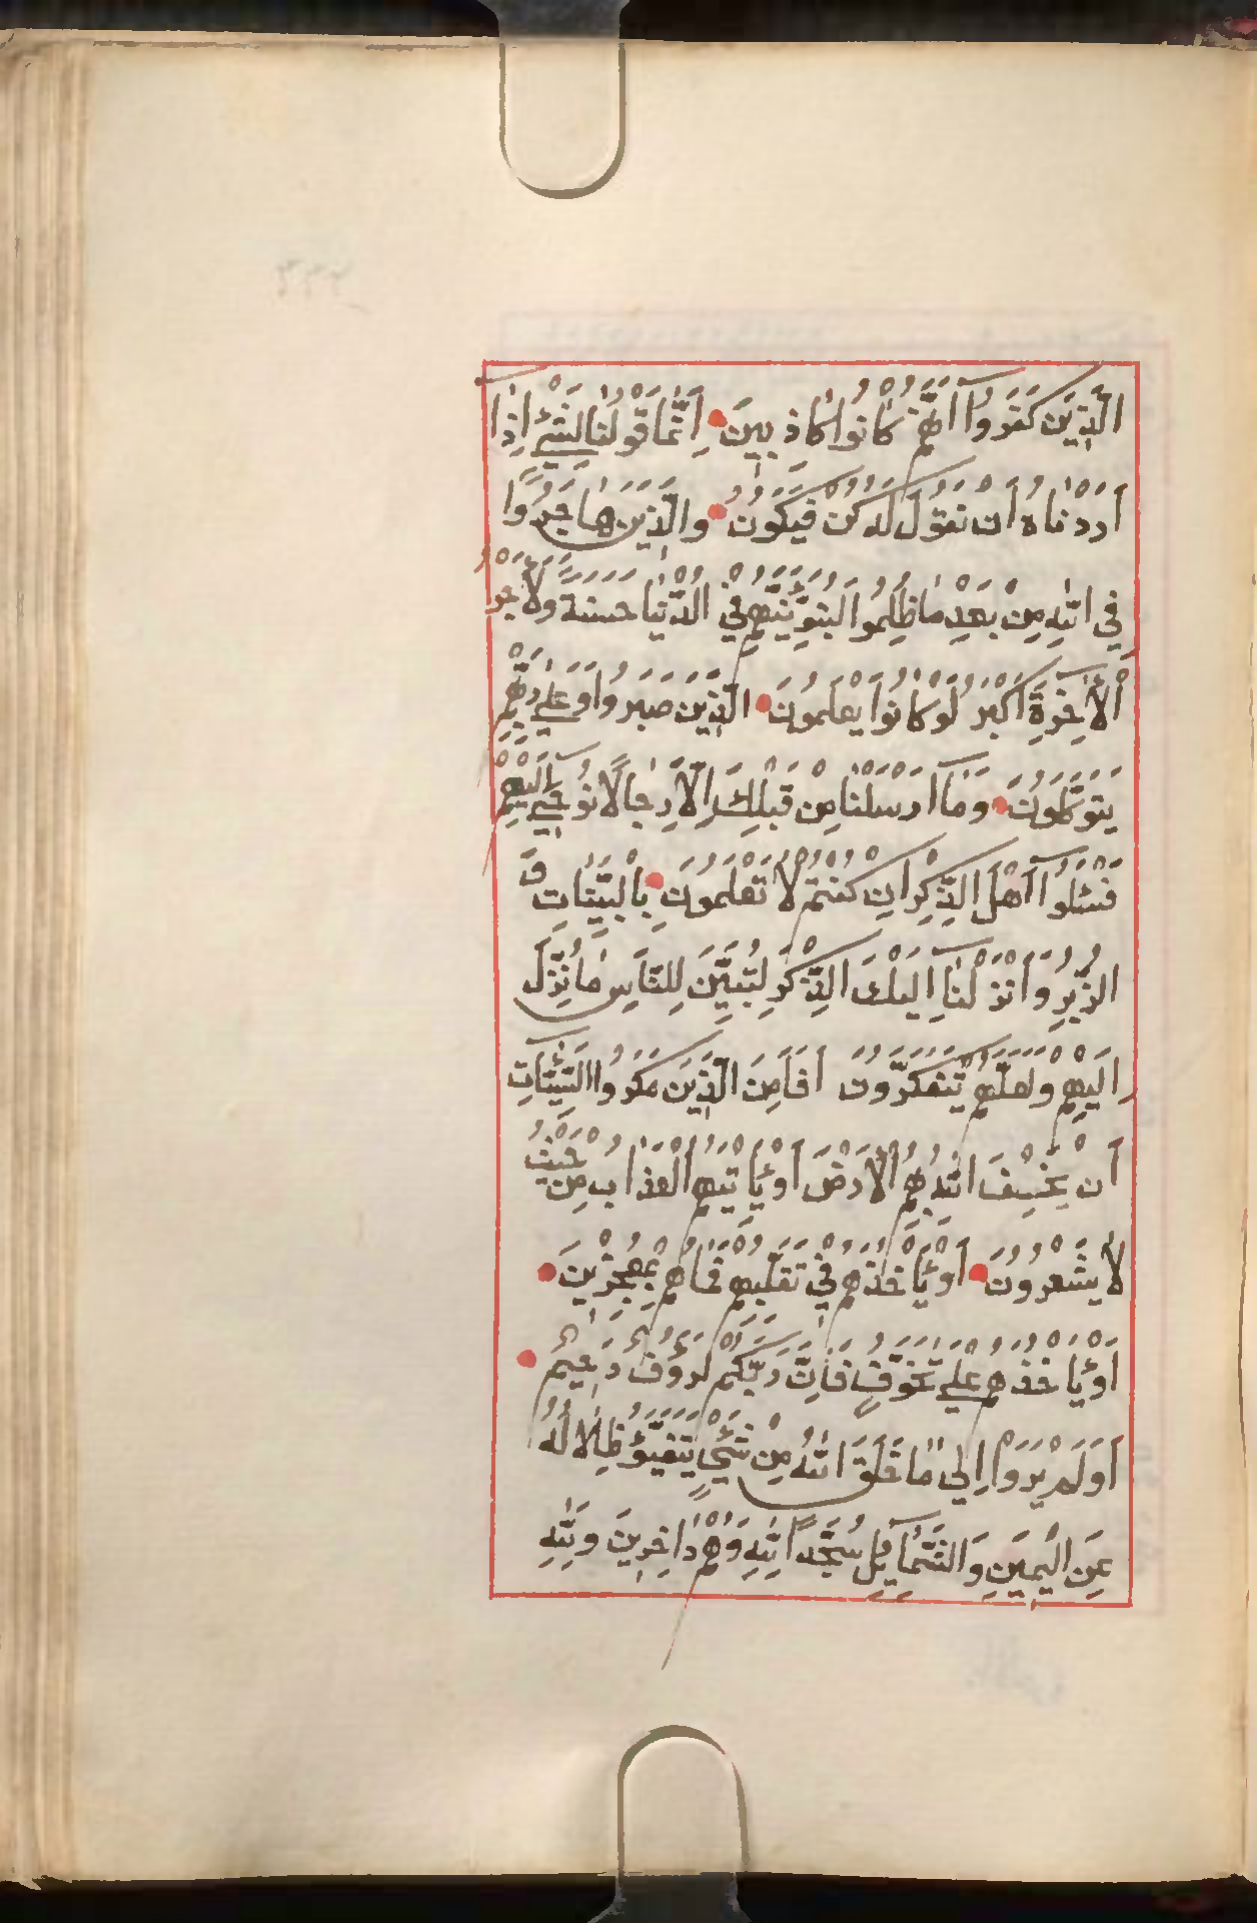 الَّذِيْنَ كَفَرُوْا اَنَّهُمْ كَانُوْا كَاذِبِيْنَ اِنَّمَا قَوْلُنَا لِشَيْءٍ اِذَا
اَرَدْنَاهُ اَنْ نَقُوْلَ لَهُ كُنْ فَيَكُوْنُ وَالَّذِيْنَ هَاجَرُوْا
فِي اللّٰهِ مِنْ بَعْدِ مَا ظُلِمُوْا لَنُبَوِّئَنَّهُمْ فِي الدُّنْيَا حَسَنَةً وَلَأَجْرُ
الْأٰخِرَةِ اَكْبَرُ لَوْ كَانُوْا يَعْلَمُوْنَ الَّذِيْنَ صَبَرُوْا وَعَلٰي رَبِّهِمْ
يَتَوَكَّلُوْنَ وَمَا اَرْسَلْنَا مِنْ قَبْلِكَ اِلَّا رِجَالًا نُوْحِيْ اِلَيْهِمْ
فَسْئَلُوْا اَهْلَ الذِّكْرِ اِنْ كُنْتُمْ لَا تَعْلَمُوْنَ بِالْبَيِّنَاتِ وَ
الزُّبُرِ وَاَنْزَلْنَا اِلَيْكَ الذِّكْرَ لِتُبَيِّنَ لِلنَّاسِ مَا نُزِّلَ
اِلَيْهِمْ وَلَعَلَّهُمْ يَتَفَكَّرُوْنَ اَفَاَمِنَ الَّذِيْنَ مَكَرُوا السَّيِّئَاتِ
اَنْ يَخْسِفَ اللّٰهُ بِهِمُ الْاَرْضَ اَوْ يَاْتِيَهُمُ الْعَذَابُ مِنْ حَيْثُ
لَا يَشْعُرُوْنَ اَوْ يَاْخُذَهُمْ فِيْ تَقَلُّبِهِمْ فَمَا هُمْ بِمُعْجِزِيْنَ
اَوْ يَاْخُذَهُمْ عَلٰي تَخَوُّفٍ فَاِنَّ رَبَّكُمْ لَرَؤُفٌ رَحِيْمٌ
اَوَلَمْ يَرَوْا اِلٰي مَا خَلَقَ اللّٰهُ مِنْ شَيْءٍ يَتَفَيَّؤُ ظِلَالُهُ
عَنِ الْيَمِيْنِ وَالشَّمَآئِلِ سُجَّدًا لِلّٰهِ وَهُمْ دَاخِرِيْنَ وَلِلّٰهِ